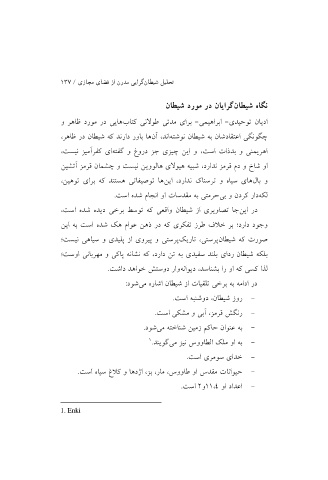 تحلیل شیطان‌گرایی مدرن از فضای مجازی / ۱۳۷
نگاه شیطان‌گرایان در مورد شیطان
ادیان توحیدی- ابراهیمی- برای مدتی طولانی کتاب‌هایی در مورد ظاهر و
چگونگی اعتقادشان به شیطان نوشته‌اند، آن‌ها باور دارند که شیطان در ظاهر،
اهریمنی و بدذات است، و این چیزی جز دروغ و گفته‌ای کفرآمیز نیست،
او شاخ و دم قرمز ندارد، شبیه هیولای هالووین نیست و چشمان قرمز آتشین
و بال‌های سیاه و ترسناک ندارد، این‌ها توصیفاتی هستند که برای توهین،
لکه‌دار کردن و بی‌حرمتی به مقدسات او انجام شده است.
در این‌جا تصاویری از شیطان واقعی که توسط برخی دیده شده است،
وجود دارد؛ بر خلاف طرز تفکری که در ذهن عوام هک شده است به این
صورت که شیطان‌پرستی، تاریک‌پرستی و پیروی از پلیدی و سیاهی نیست؛
بلکه شیطان ردای بلند سفیدی به تن دارد، که نشانه پاکی و مهربانی اوست؛
لذا کسی که او را بشناسد، دیوانه‌وار دوستش خواهد داشت.
در ادامه به برخی تلقیات از شیطان اشاره می‌شود:
- روز شیطان، دوشنبه است.
- رنگش قرمز، آبی و مشکی است.
- به عنوان حاکم زمین شناخته می‌شود.
- به او ملک الطاووس نیز می‌گویند.۱
- خدای سومری است.
- حیوانات مقدس او طاووس، مار، بز، اژدها و کلاغ سیاه است.
- اعداد او ۱۱،۴ و۲ است.
1. Enki